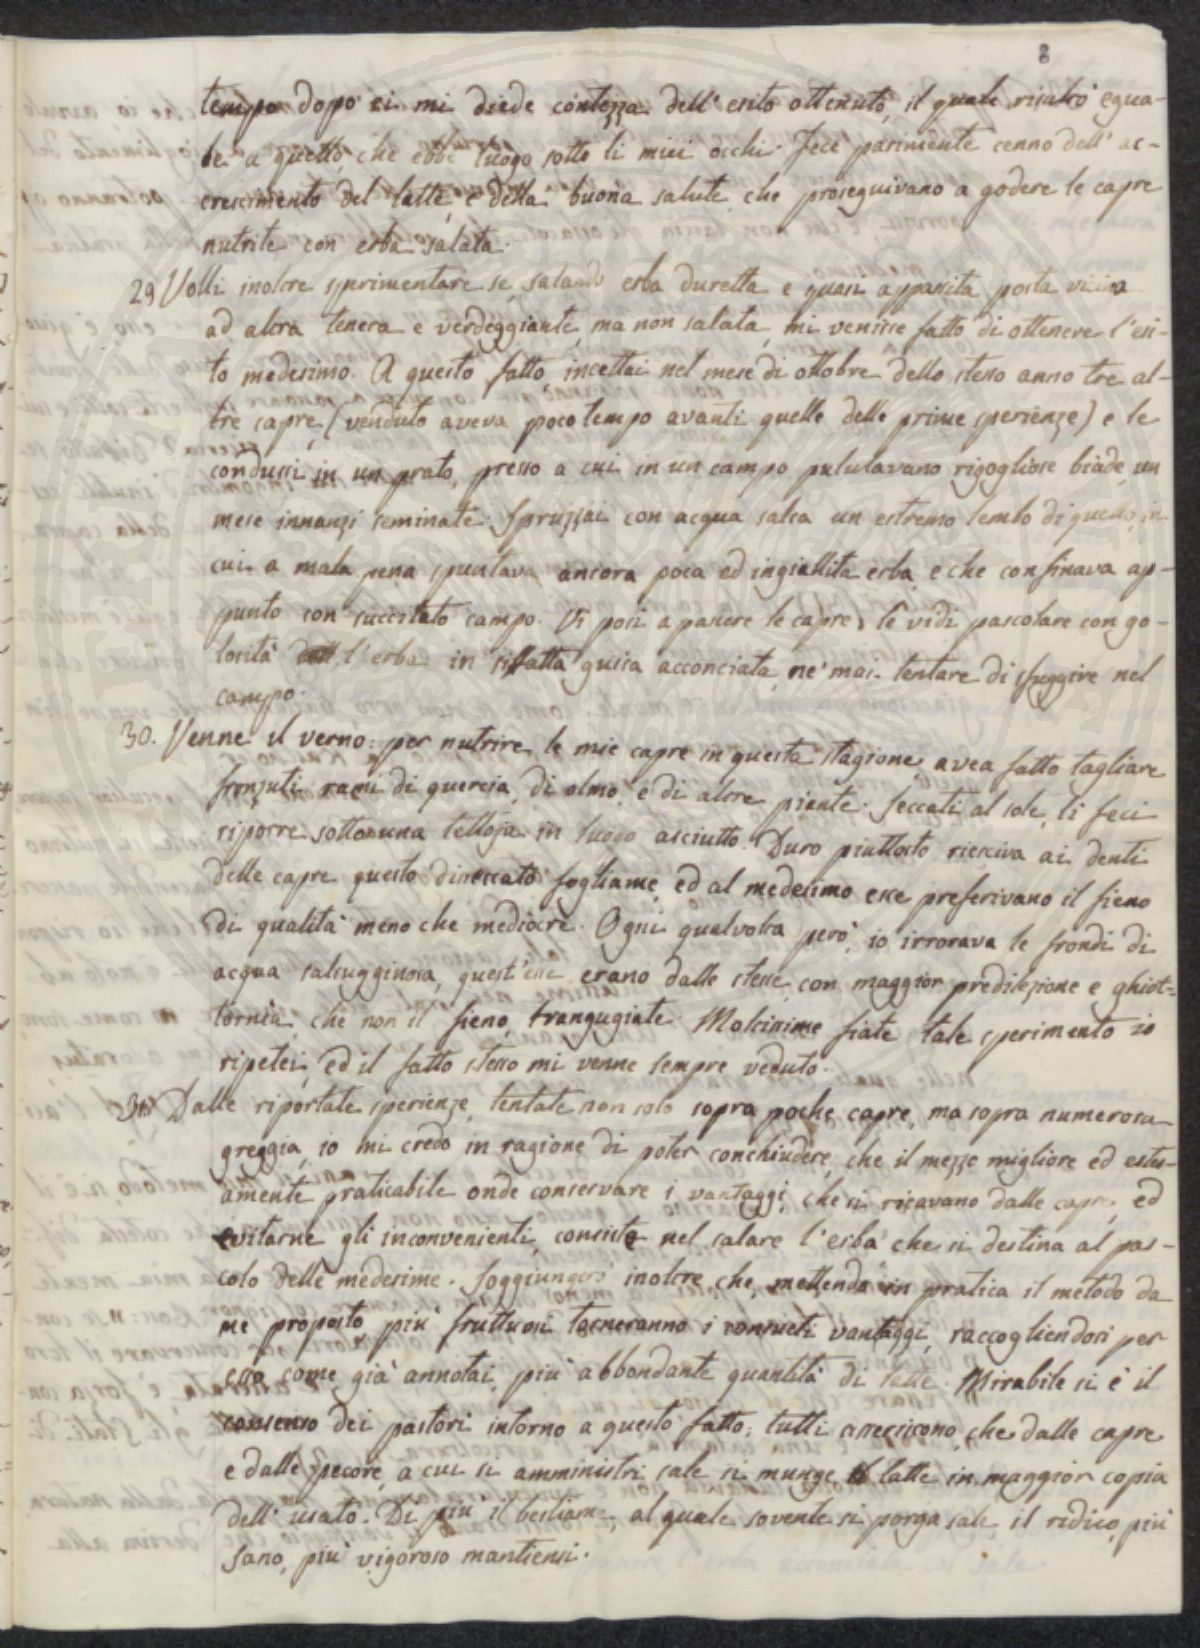 8
tempo dopo ei mi diede contezza dell'esito ottenuto, il quale risultò egua-
le a quello, che ebbe luogo sotto li miei occhi. Fece parimente cenno dell'ac-
crescimento del latte, e della buona salute, che proseguivano a godere le capre
nutrite con erba salata.
29 Volli inoltre sperimentare se, salando erba duretta e quasi appassita posta vicina
ad altra tenera e verdeggiante, ma non salata, mi venisse fatto di ottenere l'esi-
to medesimo. A questo fatto, incettai nel mese di ottobre dello stesso anno tre al-
tre capre, (venduto aveva poco tempo avanti quelle delle prime sperienze) e le
condussi in un prato, presso a cui in un campo pululavano rigogliose biade, un
mese innanzi seminate. Spruzzai con acqua salsa un estremo lembo di quello, in
cui a mala pena spuntava ancora poca ed ingiallita erba, e che confinava ap-
punto con succitato campo. Vi posi a pascere le capre, le vidi pascolare con go-
losità l'erba in siffatta guisa acconciata, nè mai tentare di sfuggire nel
campo.
30. Venne il verno: per nutrire le mie capre in questa stagione, avea fatto tagliare
fronzuti rami di quercia, di olmo, e di altre piante. Seccati al sole, li feci
riporre sotto una tettoja in luogo asciutto. Duro piuttosto riesciva ai denti
delle capre questo disseccato fogliame, ed al medesimo esse preferivano il fieno
di qualità meno che mediocre. Ogni qualvolta però, io irrorava le frondi di
acqua salsugginosa, quest'esse erano dalle stesse con maggior predilezione e ghiot-
tornia, che non il fieno, trangugiate. Moltissime fiate tale sperimento io
ripetei, ed il fatto stesso mi venne sempre veduto.
31. Dalle riportate sperienze, tentate non solo sopra poche capre, ma sopra numerosa
greggia, io mi credo in ragione di poter conchiudere, che il mezzo migliore ed estes-
amente praticabile onde conservare i vantaggi, che si ricavano dalle capre, ed
evitarne gli inconvenienti, consiste nel salare l'erba che si destina al pas-
colo delle medesime. Soggiungerò inoltre che, mettendo in pratica il metodo da
me proposto più fruttuosi torneranno i consueti vantaggi, raccogliendosi per
esso, come già annotai, più abbondante quantità di latte. Mirabile si è il
consenso dei pastori intorno a questo fatto; tutti asseriscono, che dalle capre
e dalle pecore, a cui si amministri sale si munge il latte in maggior copia
dell'usato. Di più il bestiame, al quale sovente si porga sale, il ridico, più
sano, più vigoroso mantiensi.